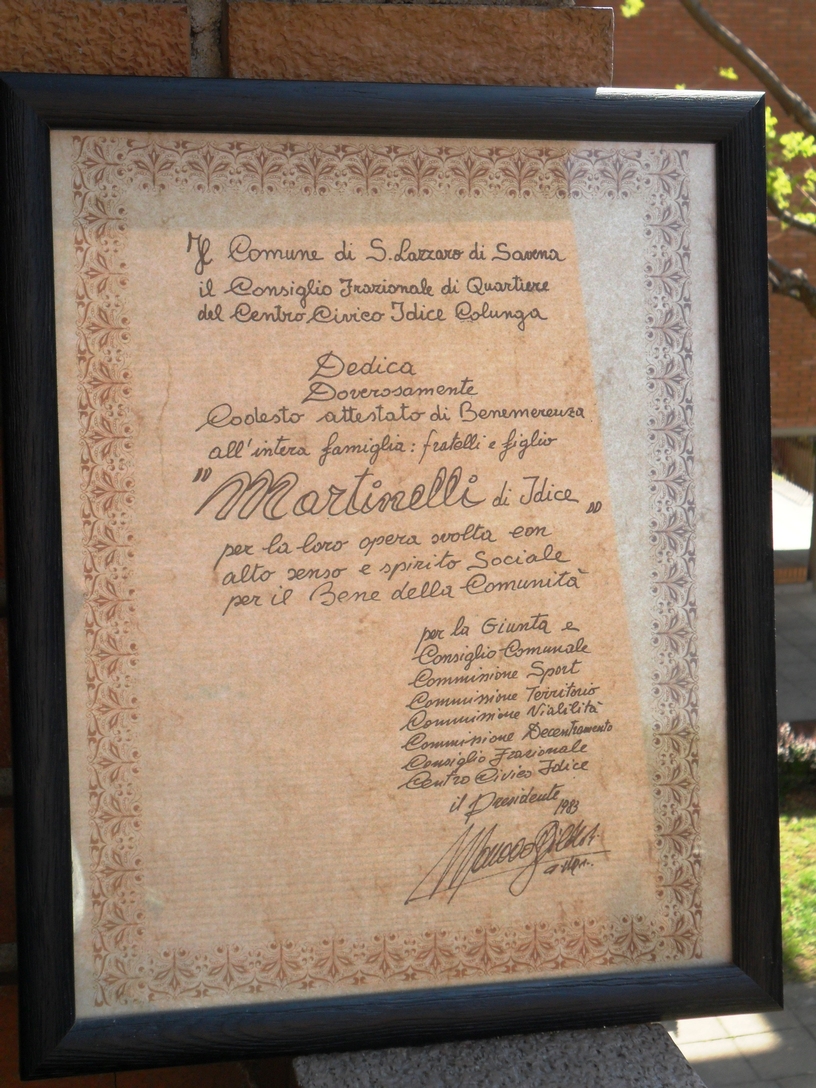 Il Comune di S. Lazzaro di Savena
il Consiglio Frazionale di Quartiere
del Centro Civico Idice Colunga
Dedica
Doverosamente
Codesto attestato di Benemerenza
all'intera famiglia: fratelli e figlio
"Martinelli di Idice"
per la loro opera svolta con
alto senso e spirito Sociale
per il Bene della Comunità
per la Giunta e
Consiglio Comunale
Commissione Sport
Commissione Territorio
Commissione Viabilità
Commissione Decentramento
Consiglio Frazionale
Centro Civico Idice
il Presidente
1983